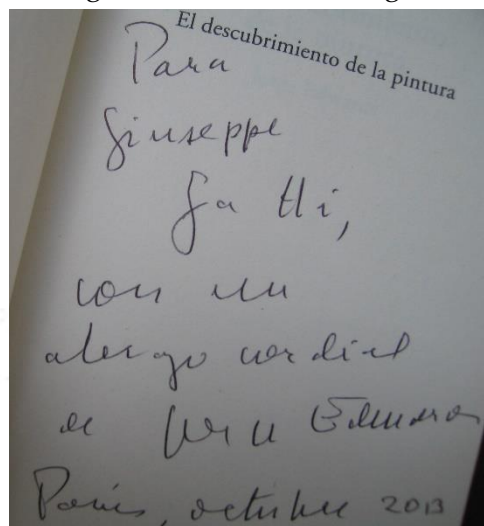 El descubrimiento de la pintura
Para
Giuseppe
Gatti,
con un
abrazo cordial
de Jorge Edwards
París, octubre 2013